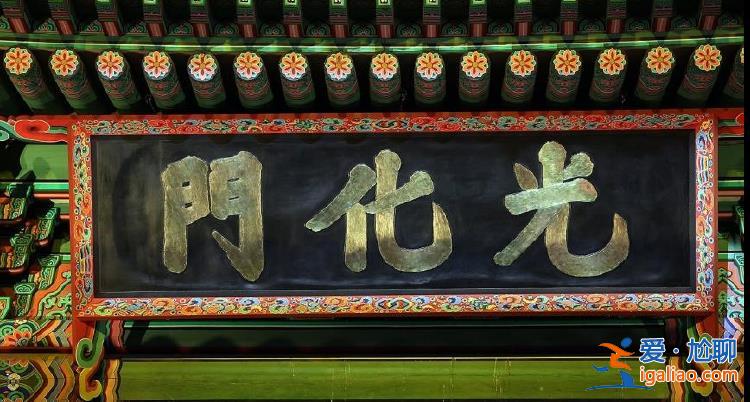 門化光
爱·尬聊
igaliao.com